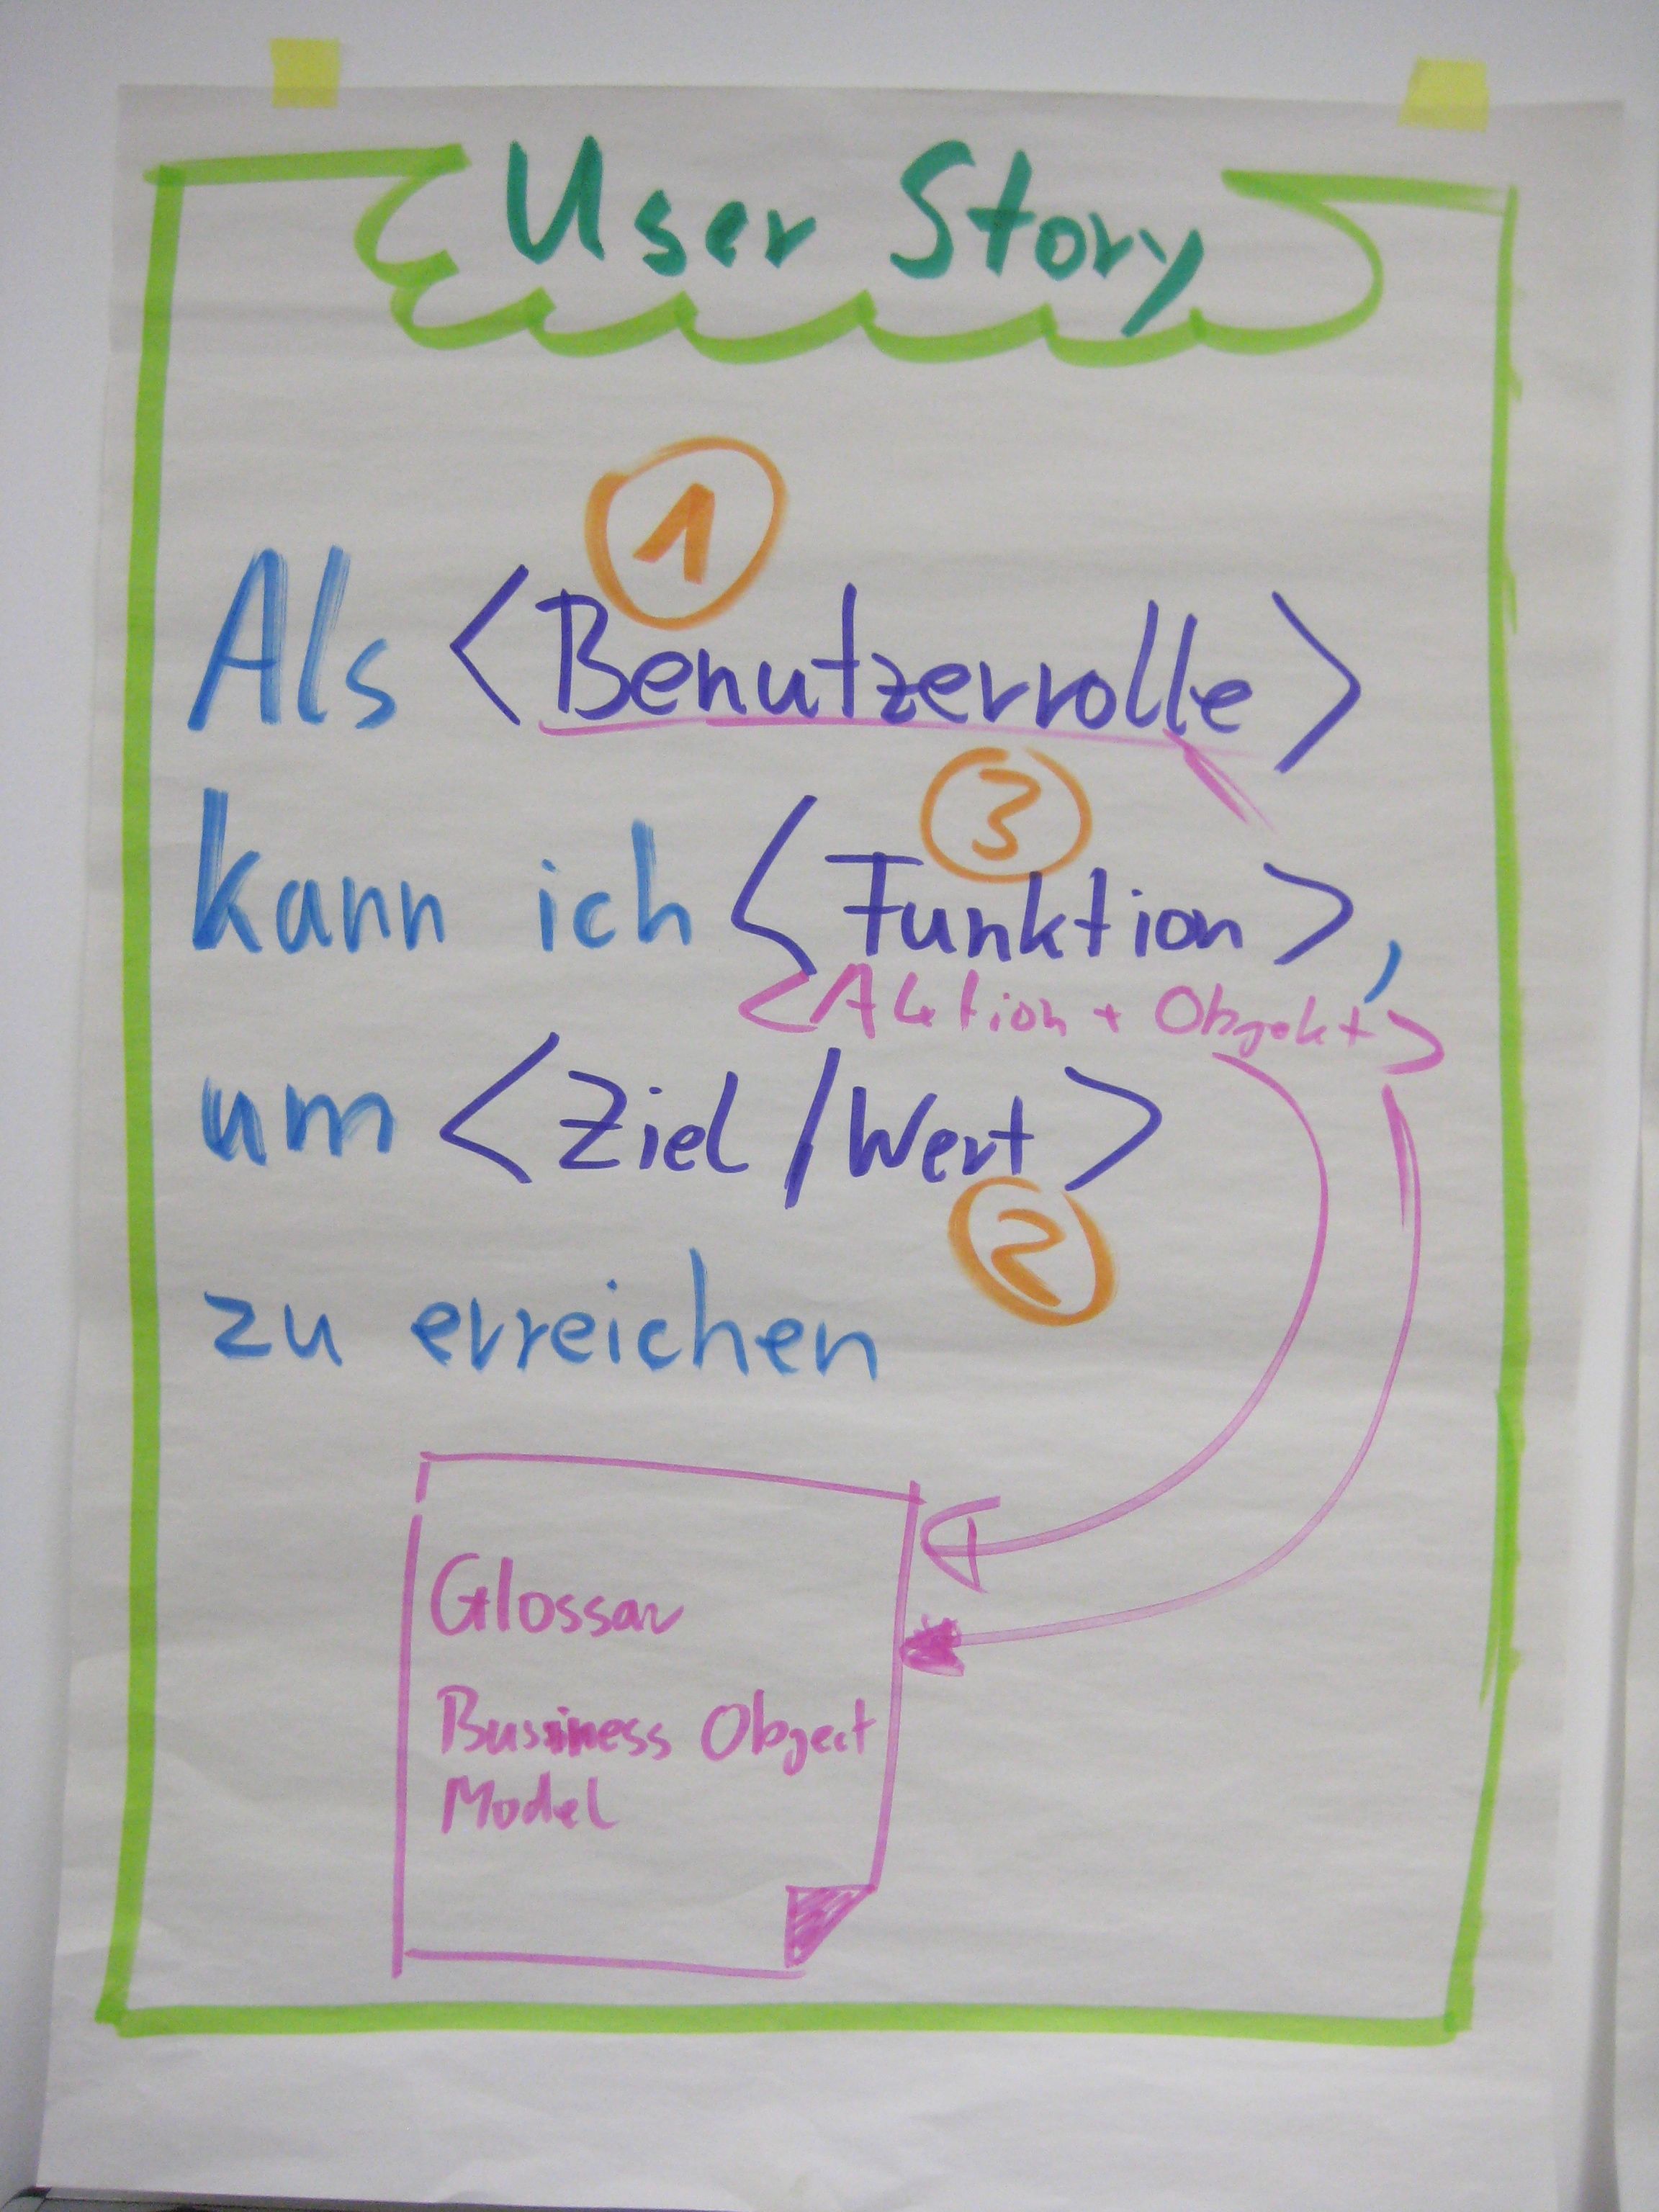 User Story
1
Als <Benutzerrolle>
3
kann ich <Funktion>,
<Aktion + Objekt>
um <Ziel/Wert>
2
zu erreichen
Glossar
Business Object
Model